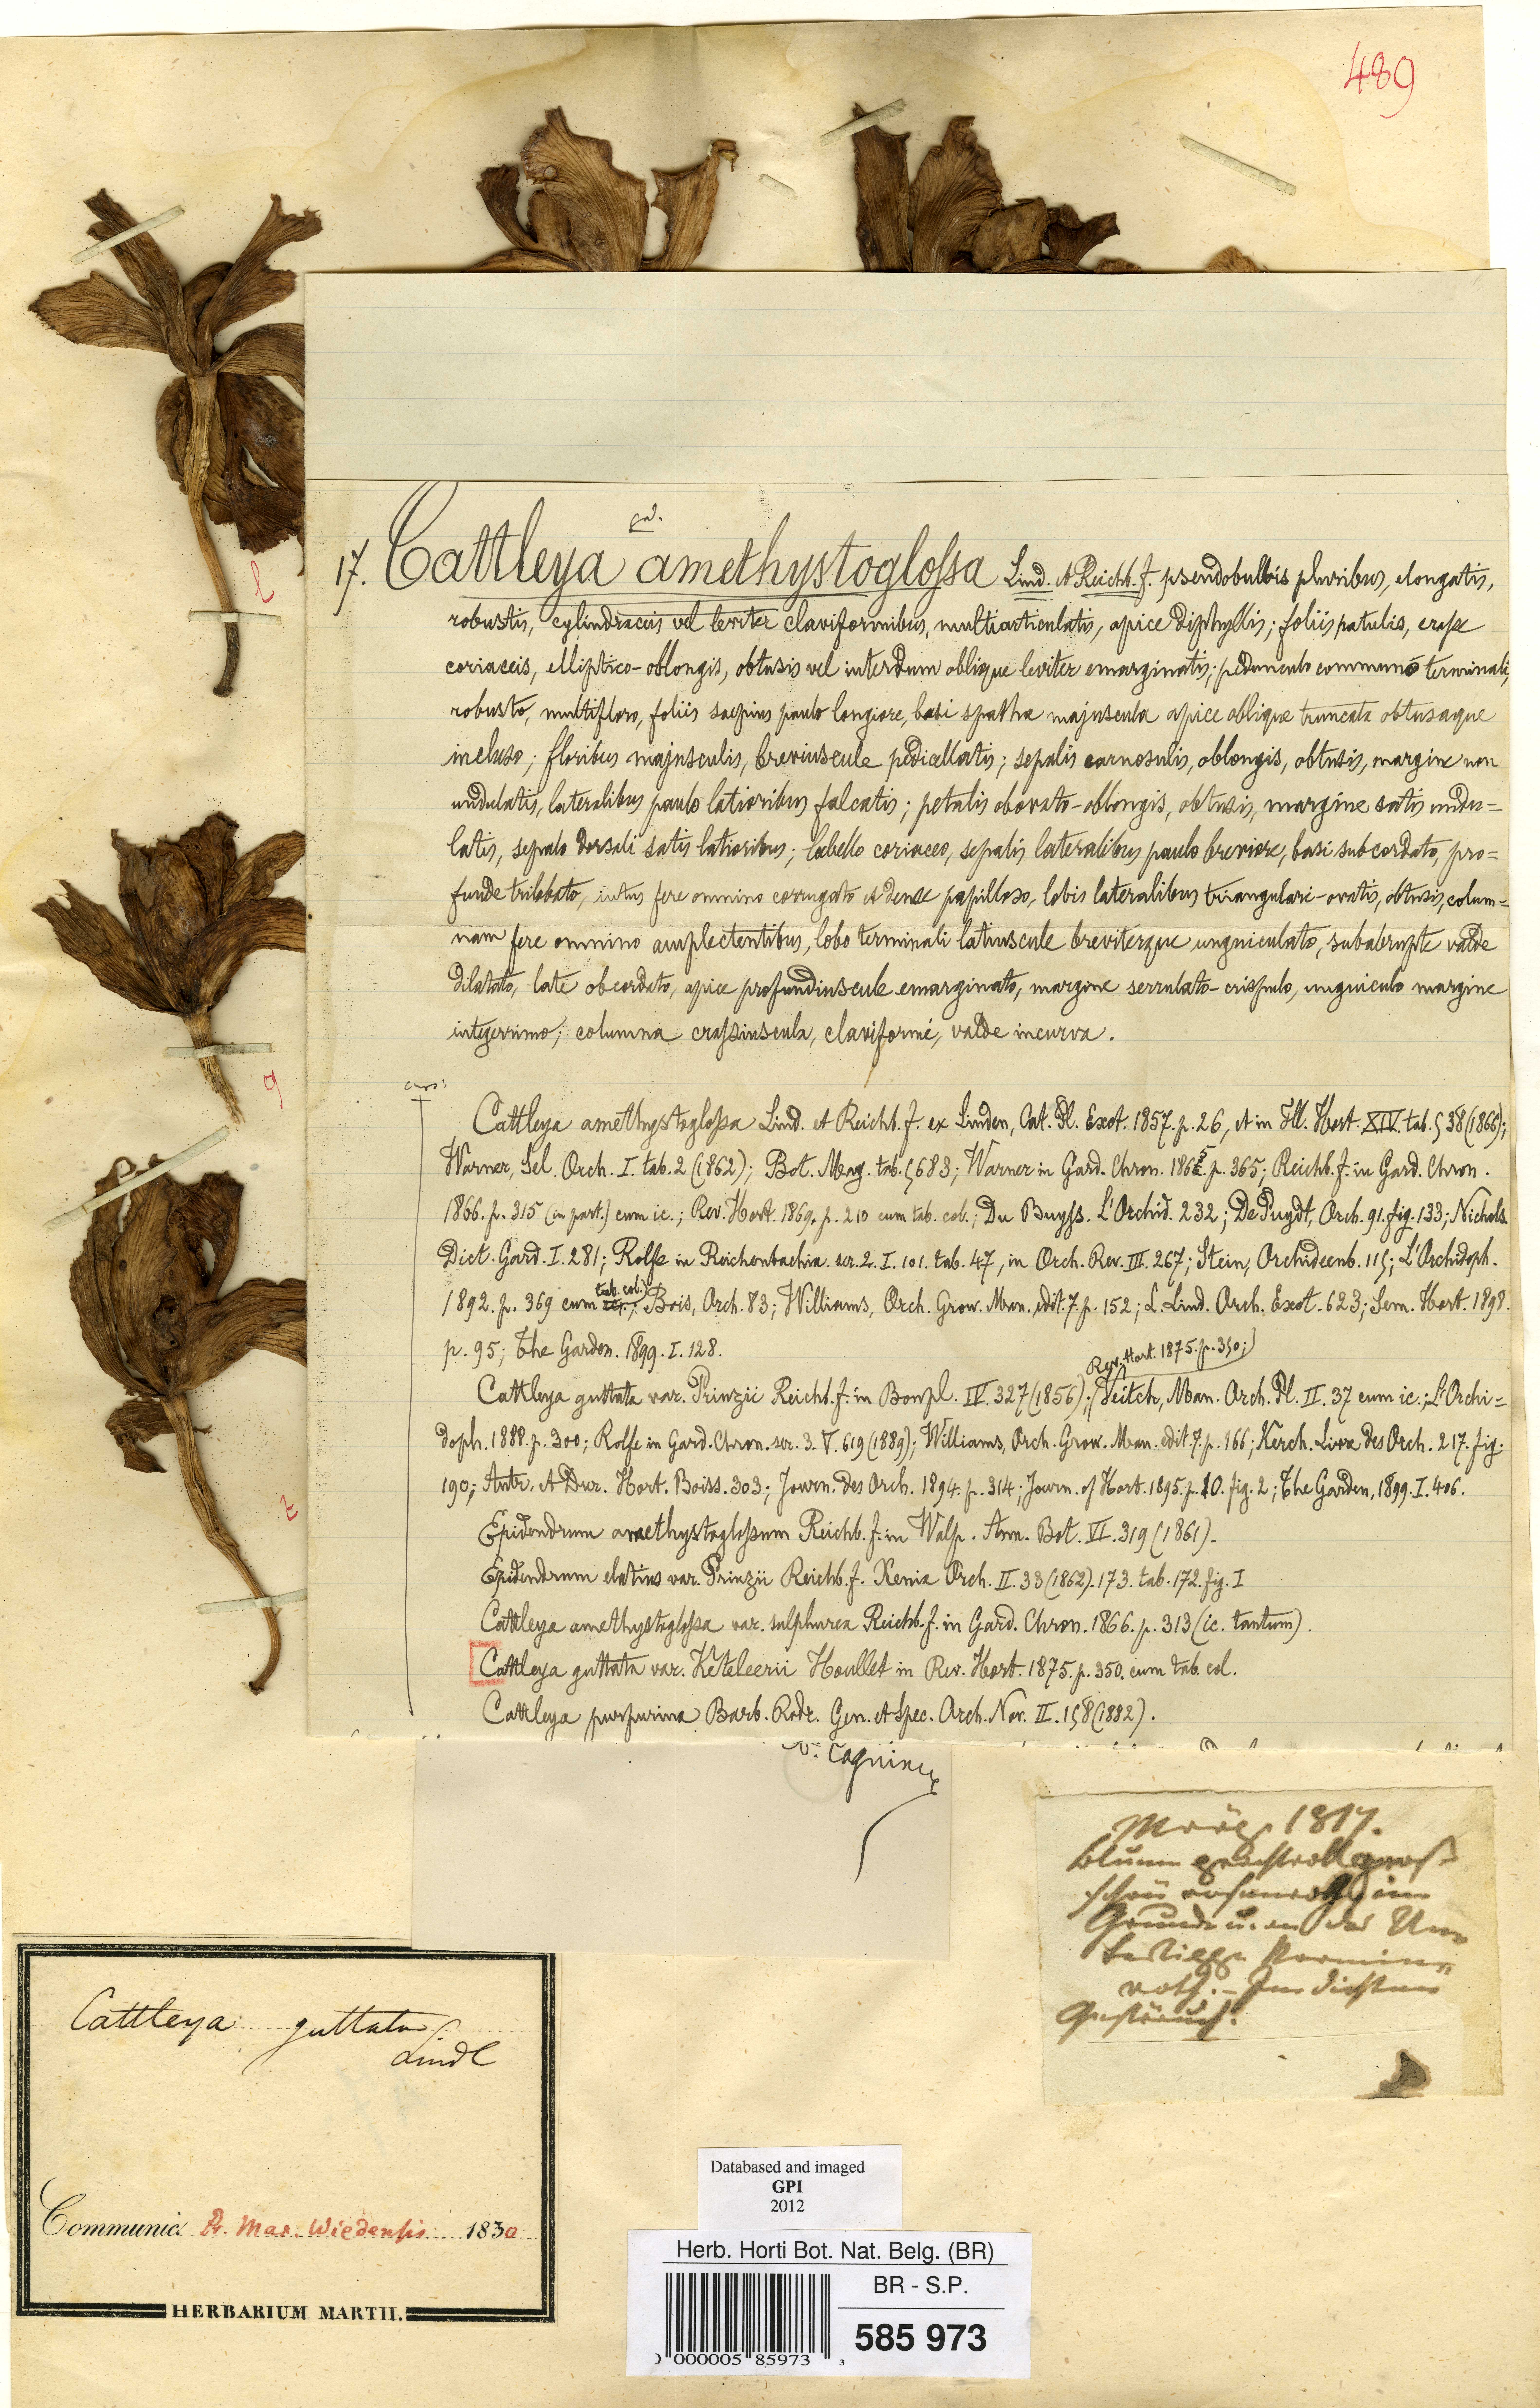 489
gd.
17. Cattleya amethystoglossa Lind. et Reichb. f. pseudobulbis pluribus, elongatis,
robustis, cylindraceis vel leviter claviformibus, multiarticulatis, apice diphyllis; foliis patulis, crasse
coriaceis, elliptico-oblongis, obtusis vel interdum oblique leviter emarginatis; pedunculo communi terminali,
robusto, multifloro, foliis saepius paulo longiore, basi spatha majuscula apice oblique truncata obtusaque
incluso; floribus majusculis, breviuscule pedicellatis; sepalis carnosulis, oblongis, obtusis, margine non
undulatis, lateralibus paulo latioribus falcatis; petalis obovato-oblongis, obtusis, margine satis undu=
latis, sepalo dorsali satis latioribus; labello coriaceo, sepalis lateralibus paulo breviore, basi subcordato, pro=
funde trilobato, intus fere omnino corrugato et dense papilloso, lobis lateralibus triangulari-ovatis, obtusis, colum=
nam fere omnino amplectentibus, lobo terminali latiuscule breviterque unguiculato, subabrupte valde
dilatato, late obcordato, apice profundiuscule emarginato, margine serrulato-crispulo, unguiculo margine
integerrimo; columna crassiuscula, claviformi, valde incurva.
Cattleya amethystoglossa Lind. et Reichb. f. ex Linden, Cat. Pl. Exot. 1857. p. 26, et in Ill. Hort. XIV. tab. 538 (1866);
Warner, Sel. Orch. I. tab. 2 (1862); Bot. Mag. tab. 5683; Warner in Gard. Chron. 1865 p. 365; Reichb. f. in Gard. Chron.
1866. p. 315 (in part.) cum ic.; Rev. Hort. 1869. p. 210 cum tab. col.; Du Buyss. L'Orchid. 232; De Puydt, Orch. 91. fig. 133; Nichols.
Dict. Gard. I. 281; Rolfe in Reichenbachia. ser. 2. I. 101. tab. 47, in Orch. Rev. III. 267; Stein, Orchideenb. 115; L'Orchidoph.
1892. p. 369 cum tab. col.; Bois, Orch. 83; Williams, Orch. Grow. Man. edit. 7. p. 152; L. Lind. Orch. Exot. 623; Sem. Hort. 1898.
p. 95; The Garden. 1899. I. 128.
Cattleya guttata var. Prinzii Reichb. f. in Bonpl. IV. 327 (1856); Rev. Hort. 1875. p. 350; Veitch, Man. Orch. Pl. II. 37 cum ic.; L'Orchi=
doph. 1888. p. 300; Rolfe in Gard. Chron. ser. 3. V. 619 (1889); Williams, Orch. Grow. Man. edit. 7. p. 166; Kerch. Livre des Orch. 217. fig.
190; Autr. et Dur. Hort. Boiss. 303; Journ. des Orch. 1894. p. 314; Journ. of Hort. 1895. p. 10. fig. 2; The Garden, 1899. I. 406.
Epidendrum amethystoglossum Reichb. f. in Walp. Ann. Bot. VI. 319 (1861).
Epidendrum elatius var. Prinzii Reichb. f. Xenia Orch. II. 33 (1862). 173. tab. 172. fig. I
Cattleya amethystoglossa var. sulphurea Reichb. f. in Gard. Chron. 1866. p. 313 (ic. tantum).
Cattleya guttata var. Keteleerii Houllet in Rev. Hort. 1875. p. 350. cum tab. col.
Cattleya purpurina Barb. Rodr. Gen. et Spec. Orch. Nov. II. 158 (1882).
Cogniaux
März 1817.
blume prachtvoll gross
schön rosenroth im
Grunde u. an der Un-
Carmin-
roth. - Im dichten
Gesträuch.
Cattleya guttata
Lindl
Communic. Pr. Max. Wiedensis 1830
HERBARIUM MARTII.
Databased and imaged
GPI
2012
Herb. Horti Bot. Nat. Belg. (BR)
BR - S.P.
585 973
0 000005 85973 3